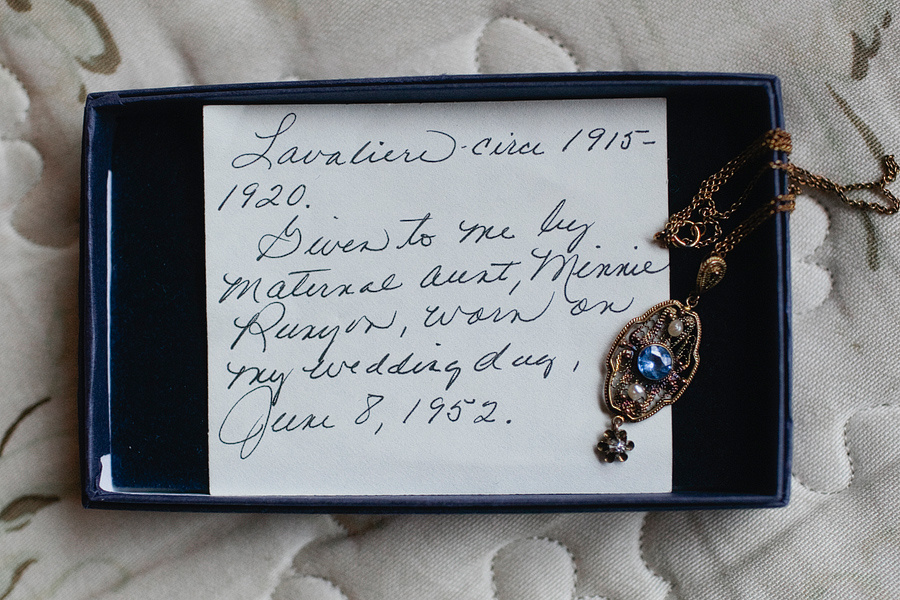 Lavaliere - circa 1915-
1920.
Given to me by
maternal aunt, Minnie
Runyon, worn on
my wedding day,
June 8, 1952.